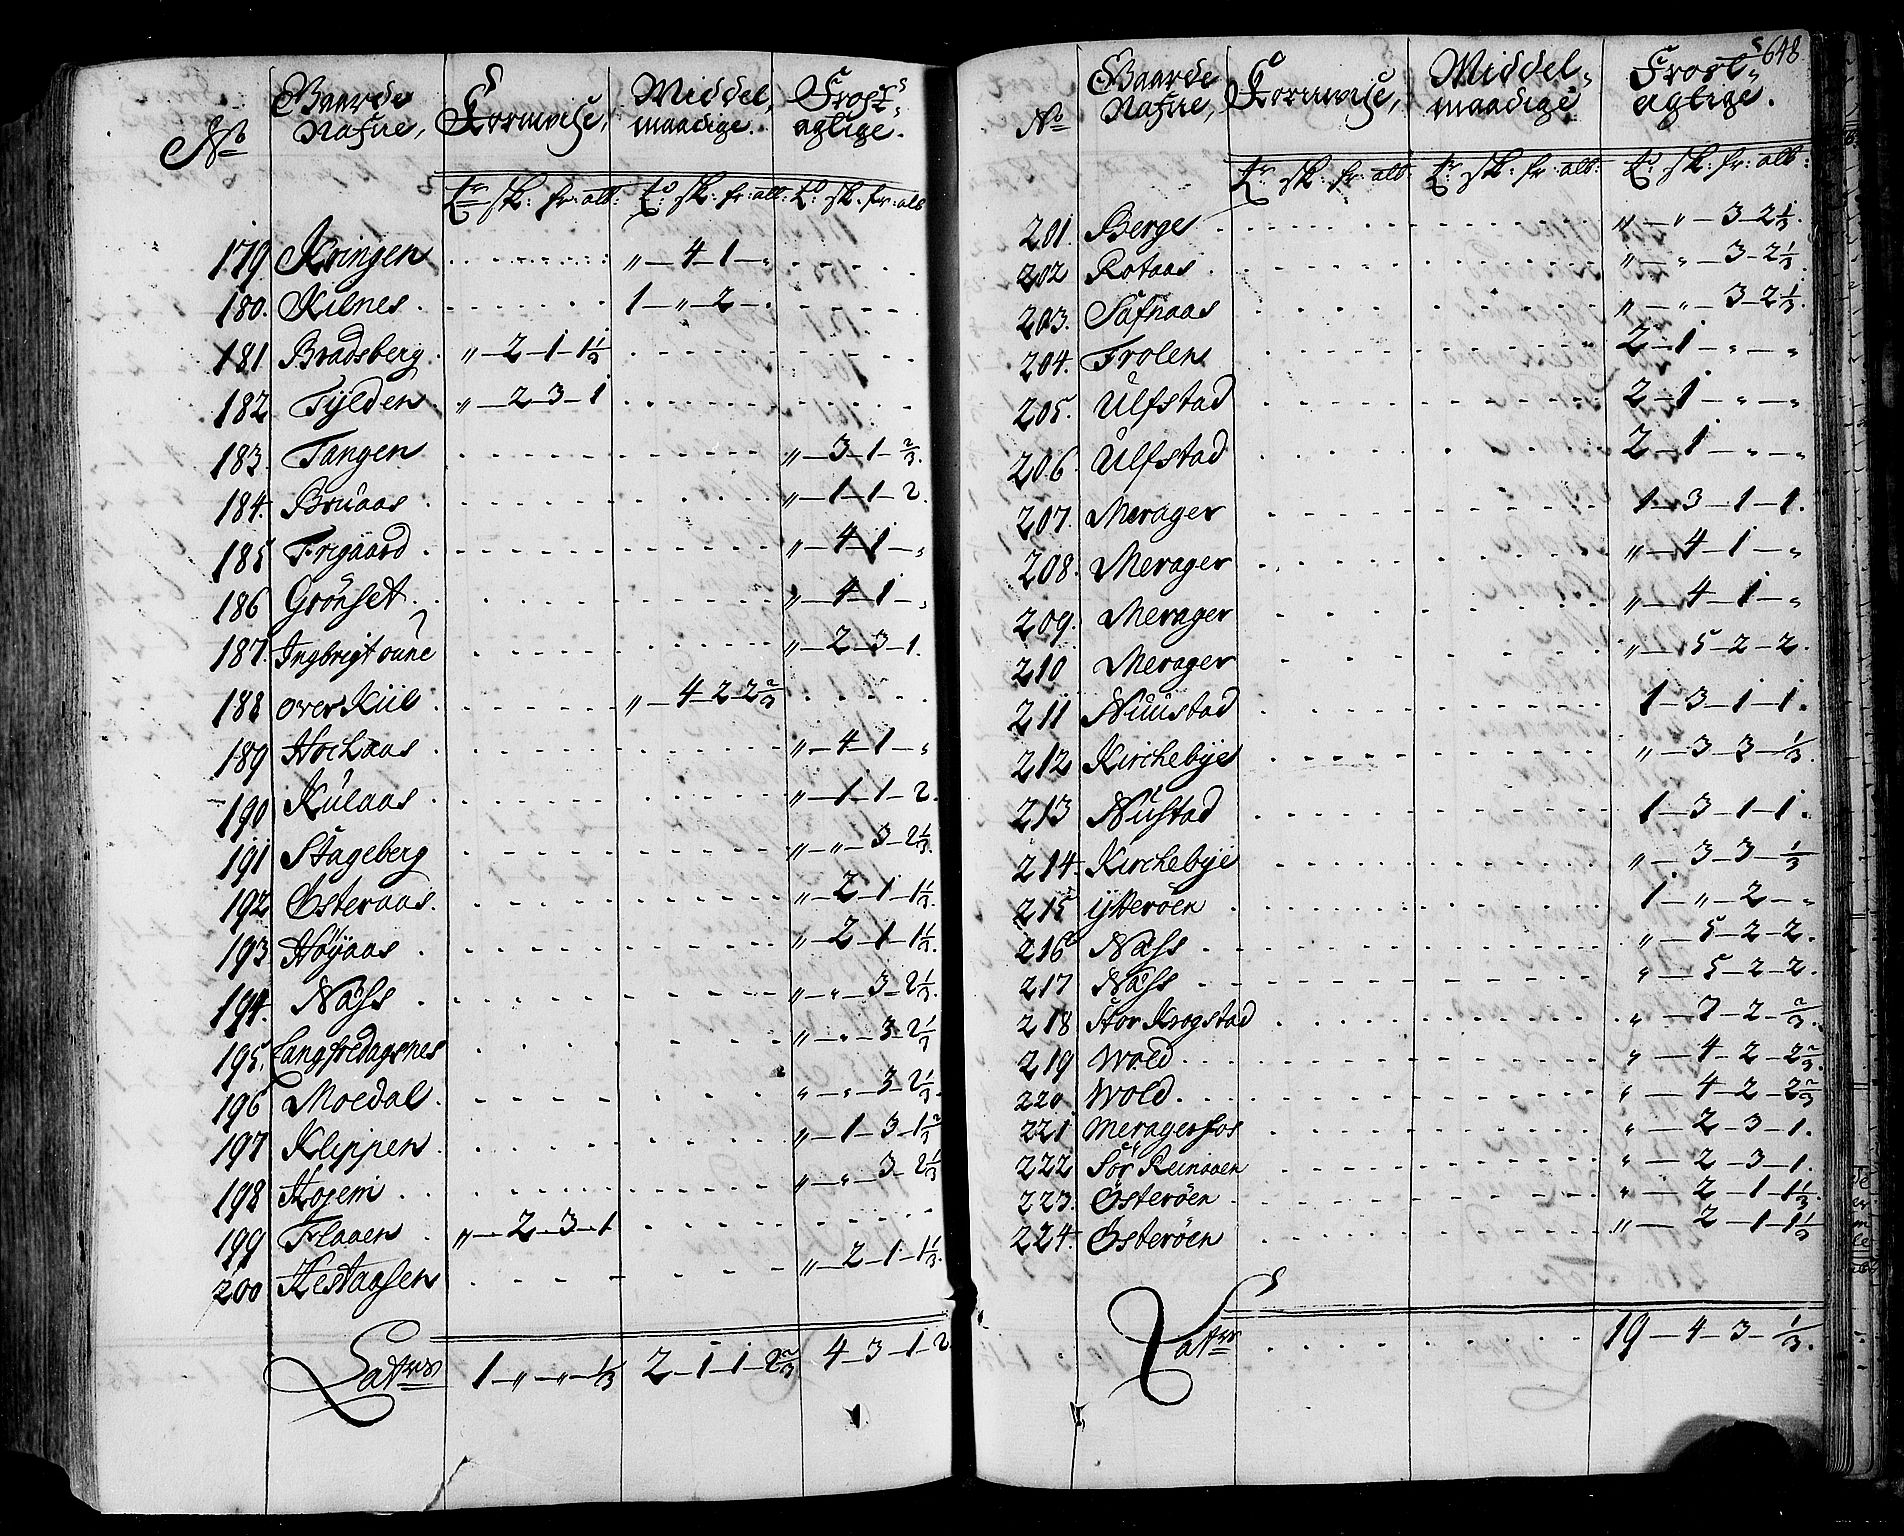 No Gaarde Nafne, Kornvise, Middel maadige. Frost aglige.
tr: sk: fr: alb: to: sk: fr: alb: to: sk: fr: alb
179 Kringen „ — 4 — 1 — „
180. Kilnes 1 — „ — 2 — „
181 Bradsberg „ — 2 — 1 — 1 1/3
182 Tylden „ — 2 — 3 — 1
183. Tangen „ — 3 — 1 — 2/3.
184. Bruaas „ — 1 — 1 — 2.
185 Trigaard „ — 4 — 1 — „
186 Grönset „ — 4 — 1 — „
187. Ingbrigt oune „ — 2 — 3 — 1.
188 over Kiil „ — 4 — 2 — 2 2/3
189 Hoelaas „ — 4 — 1 — „
190 Kulaas „ — 1 — 1 — 2.
191 Stageberg „ — „ — 3 — 2 1/3.
192 Österaas. „ — 2 — 1 — 1 1/3.
193 Höyaas „ — 2 — 1 — 1 1/3.
194. Näss „ — „ — 3 — 2 1/3.
195. Langfredagsnes „ — „ — 3 — 2 1/3
196 Moedal „ — „ — 3 — 2 1/3.
197 Klippen „ — 1 — 3 — 1 2/3
198 Hojem „ — „ — 3 — 2 1/3
199 Flaaen „ — 2 — 3 — 1
200 Hestaasen „ — 2 — 1 — 1 1/3.
Latter 1 — „ — „ — 1/3 2 — 1 — 1 — 2 2/3 4 — 3 — 1 — 2
648
No Gaarde Nafne, Kornvise, Middel maadige Frost aglige.
tr: sk: fr: alb tr: sk: fr: alb: to: sk: fr: alb:
201. Berge „ — „ — 3 — 2 1/3.
202 Rotaas „ — „ — 3 — 2 1/3.
203. Safnaas „ — „ — 3 — 2 1/3.
204. Trolen 2 — 1 — „ — „
205. Ulfstad 2 — 1 — „ — „
206 Ulfstad 2 — 1 — „ — „
207. Merager 1 — 3 — 1 — 1.
208. Merager „ — 4 — 1 — „
209. Merager „ — 4 — 1 — „
210 Merager „ — 5 — 2 — 2.
211 Nuustad 1 — 3 — 1 — 1.
212 Kirchebye „ — 3 — 3 — 1/3.
213 Nustad 1 — 3 — 1 — 1.
214. Kirchebye „ — 3 — 3 — 1/3
215 ytteröen 1 — „ — 2 — „
216 Näss „ — 5 — 2 — 2.
217 Näss „ — 5 — 2 — 2.
218 Stor Krogstad „ — 7 — 2 — 2/3.
219 Wold „ — 4 — 2 — 2 2/3.
220 Wold „ — 4 — 2 — 2 2/3
221 Meragerfos „ — 2 — 3 — 1.
222 Sör Reinaaen „ — 2 — 3 — 1.
223. Österöen „ — 2 — 1 — 1 1/3.
224. Österöen „ — 2 — 1 — 1 1/3
Latter 19 — 4 — 3 — 1/3.